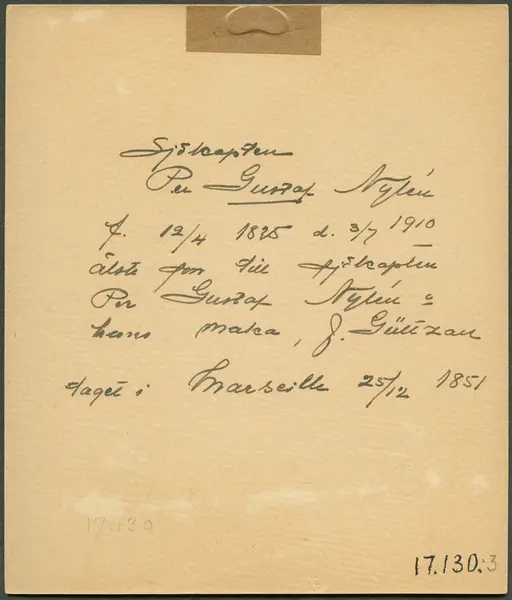 Sjökapten
Per Gustaf Nylén
f. 12/4 1825 d. 3/7 1910
älste son till sjökapten
Per Gustaf Nylén o
hans maka, f. Güttzau
taget i Marseille 25/12 1851
17.130
17.130:3